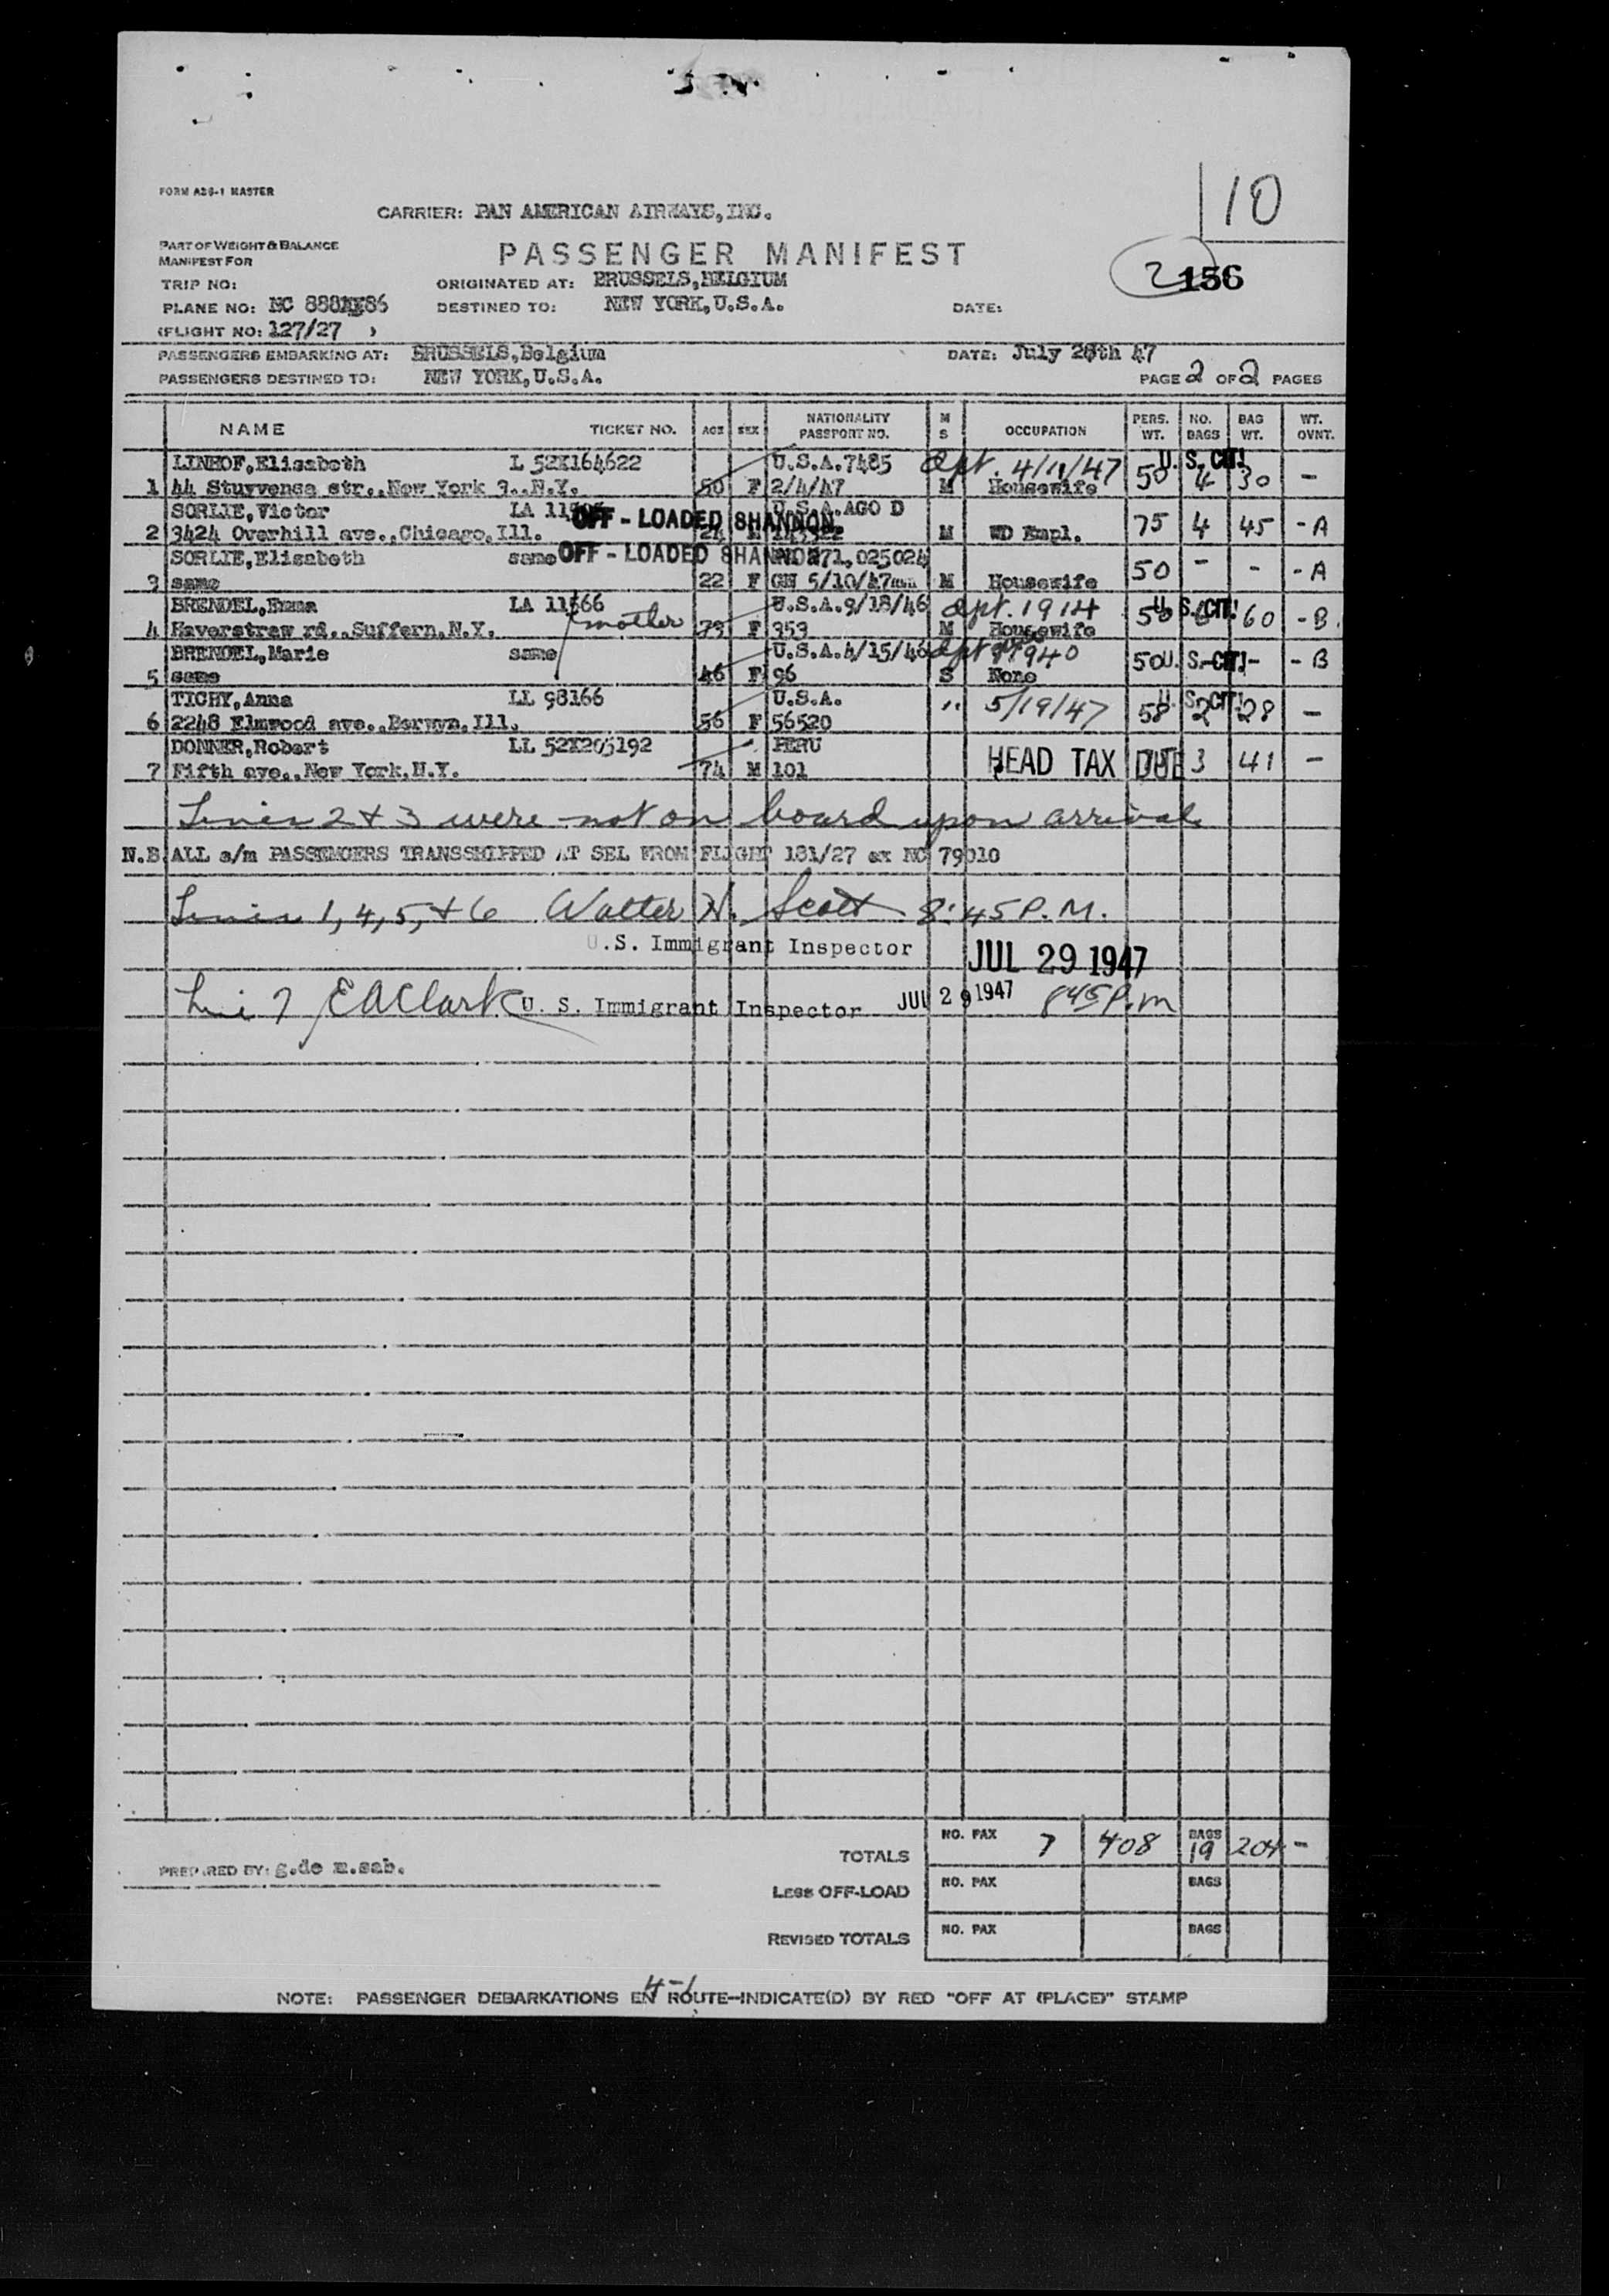 10
FORM A26-1 MASTER
CARRIER: PAN AMERICAN AIRWAYS, INC.
PART OF WEIGHT & BALANCE
MANIFEST FOR
PASSENGER MANIFEST
2 156
TRIP NO:
ORIGINATED AT: BRUSSELS, BELGIUM
PLANE NO: NC
DESTINED TO: NEW YORK, U.S.A.
DATE:
(FLIGHT NO: 127/27 )
PASSENGERS EMBARKING AT: BRUSSELS, Belgium DATE: July 28th 47
PASSENGERS DESTINED TO: NEW YORK, U.S.A. PAGE 2 OF 2 PAGES
NAME TICKET NO. AGE SEX NATIONALITY PASSPORT NO. M S OCCUPATION PERS. WT. NO. BAGS BAG WT. WT. OVNT.
LINHOF, Elisabeth L 52X164622 U.S.A. 7485 Dpt. 4/11/47 50 U. S. CIT! 4 30 -
1 44 Stuyvensa str., New York 3., N.Y. 50 F 2/4/47 M Housewife
SORLIE, Victor LA OFF-LOADED SHANNON U.S.A. AGO D 75 4 45 - A
2 3424 Overhill ave., Chicago, Ill. 24 M M WD Empl.
SORLIE, Elisabeth same OFF-LOADED SHANNON 271, 025024 50 - - - A
3 same 22 F 5/10/47 M Housewife
BRENDEL, Emma LA 11566 U.S.A. 9/18/46 dpt. 1914 50 U. S. CIT! 60 - B.
4 Haverstraw rd., Suffern, N.Y. mother 73 F 353 M Housewife
BRENDEL, Marie same U.S.A. 4/15/46 dpt 50 U. S. CIT! - - B
5 same 46 F 96 S None
TICHY, Anna LL 98166 U.S.A. " 5/19/47 58 U. S. CIT! 2 28 -
6 2248 Elmwood ave., Berwyn, Ill. 56 F 56520
DONNER, Robert LL 52X205192 PERU HEAD TAX DUE 3 41 -
7 Fifth ave., New York, N.Y. 74 M 101
Lines 2 + 3 were not on board upon arrival
N.B. ALL a/m PASSENGERS TRANSSHIPPED AT SEL FROM FLIGHT 131/27 ex NC 79010
Lines 1, 4, 5, + 6 Walter W. Scott 8:45 P.M.
U.S. Immigrant Inspector JUL 29 1947
Line 7 E A Clark U. S. Immigrant Inspector JUL 29 1947 8 45 P.m
TOTALS NO. PAX 7 408 BAGS 19 204 -
PREPARED BY: g.de m.sab.
LESS OFF-LOAD NO. PAX BAGS
REVISED TOTALS NO. PAX BAGS
4-1
NOTE: PASSENGER DEBARKATIONS EN ROUTE-INDICATE(D) BY RED "OFF AT (PLACE)" STAMP